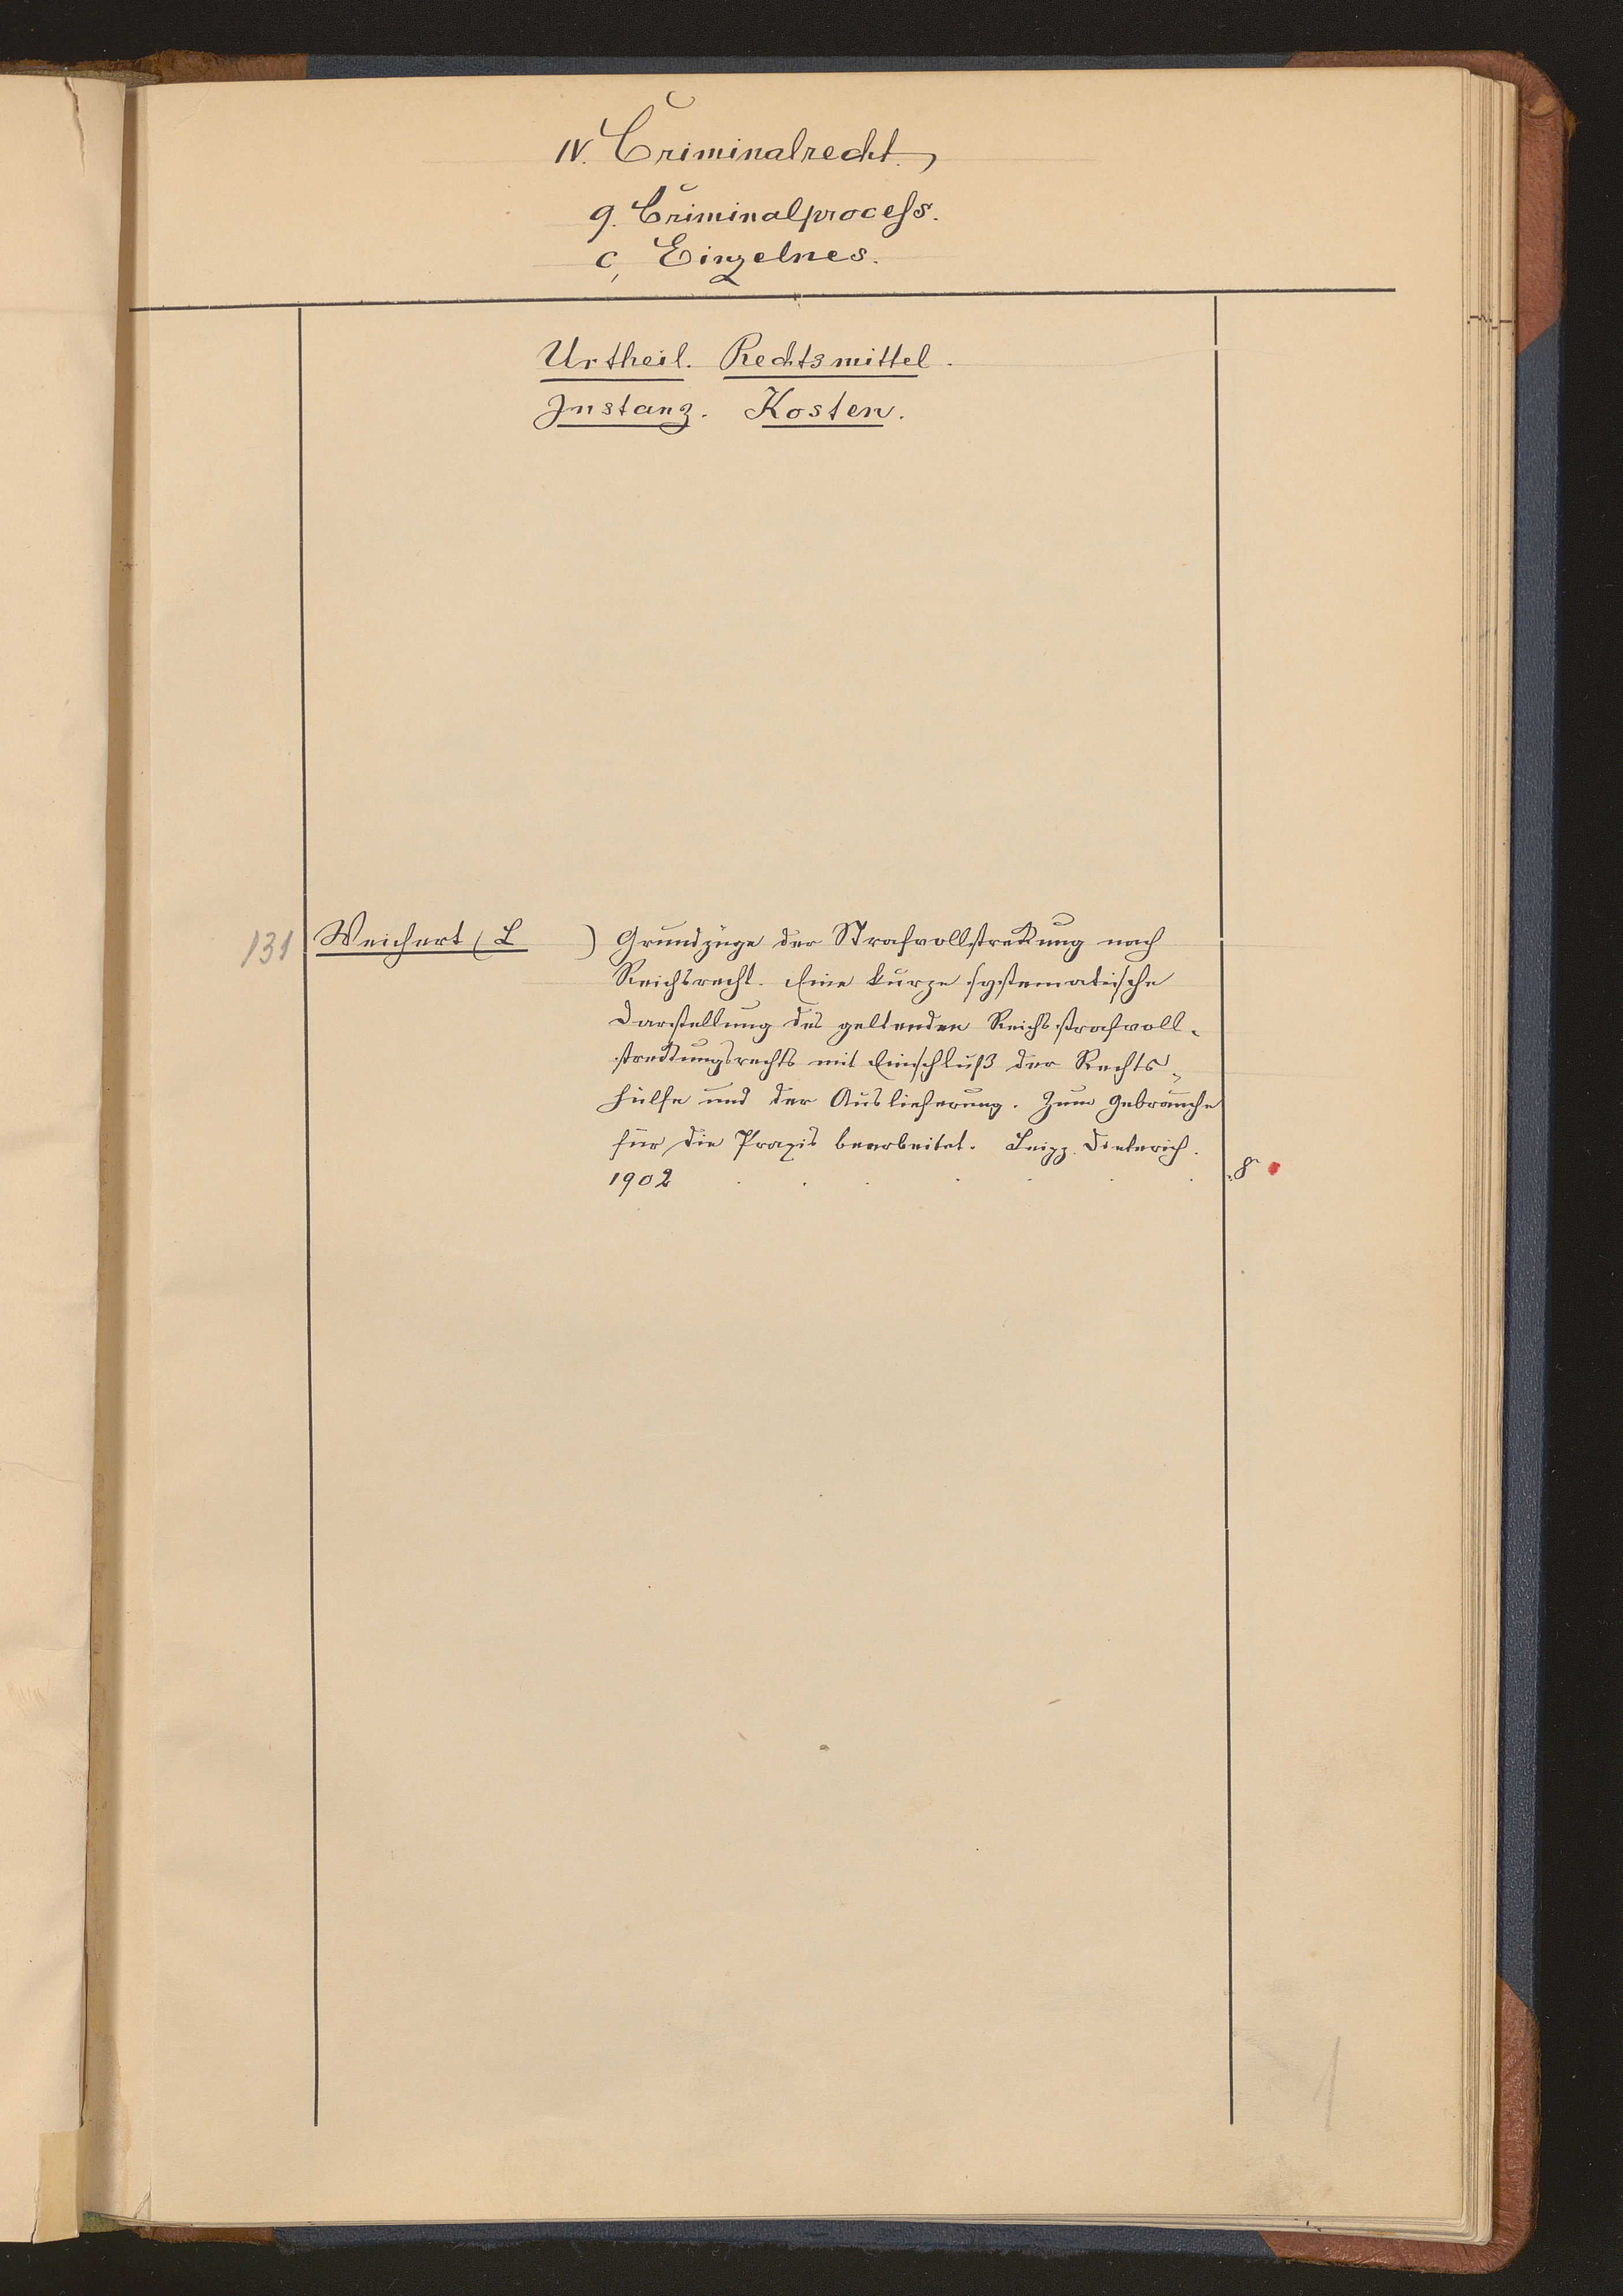 IV. Criminalrecht.
9. Criminalprocess.
c, Einzelnes.
Urtheil. Rechtsmittel.
Instanz. Kosten.
131 Weichert (L ) Grundzüge der Strafvollstreckung nach
Reichsrecht. Eine kurze systematische
Darstellung des geltenden Reichsstrafvoll-
streckungsrechts mit Einschluß der Rechts-
hülfe und der Auslieferung. Zum Gebrauche
für die Praxis bearbeitet. Leipz. Dieterich.
1902 . . . . . . . 8
1